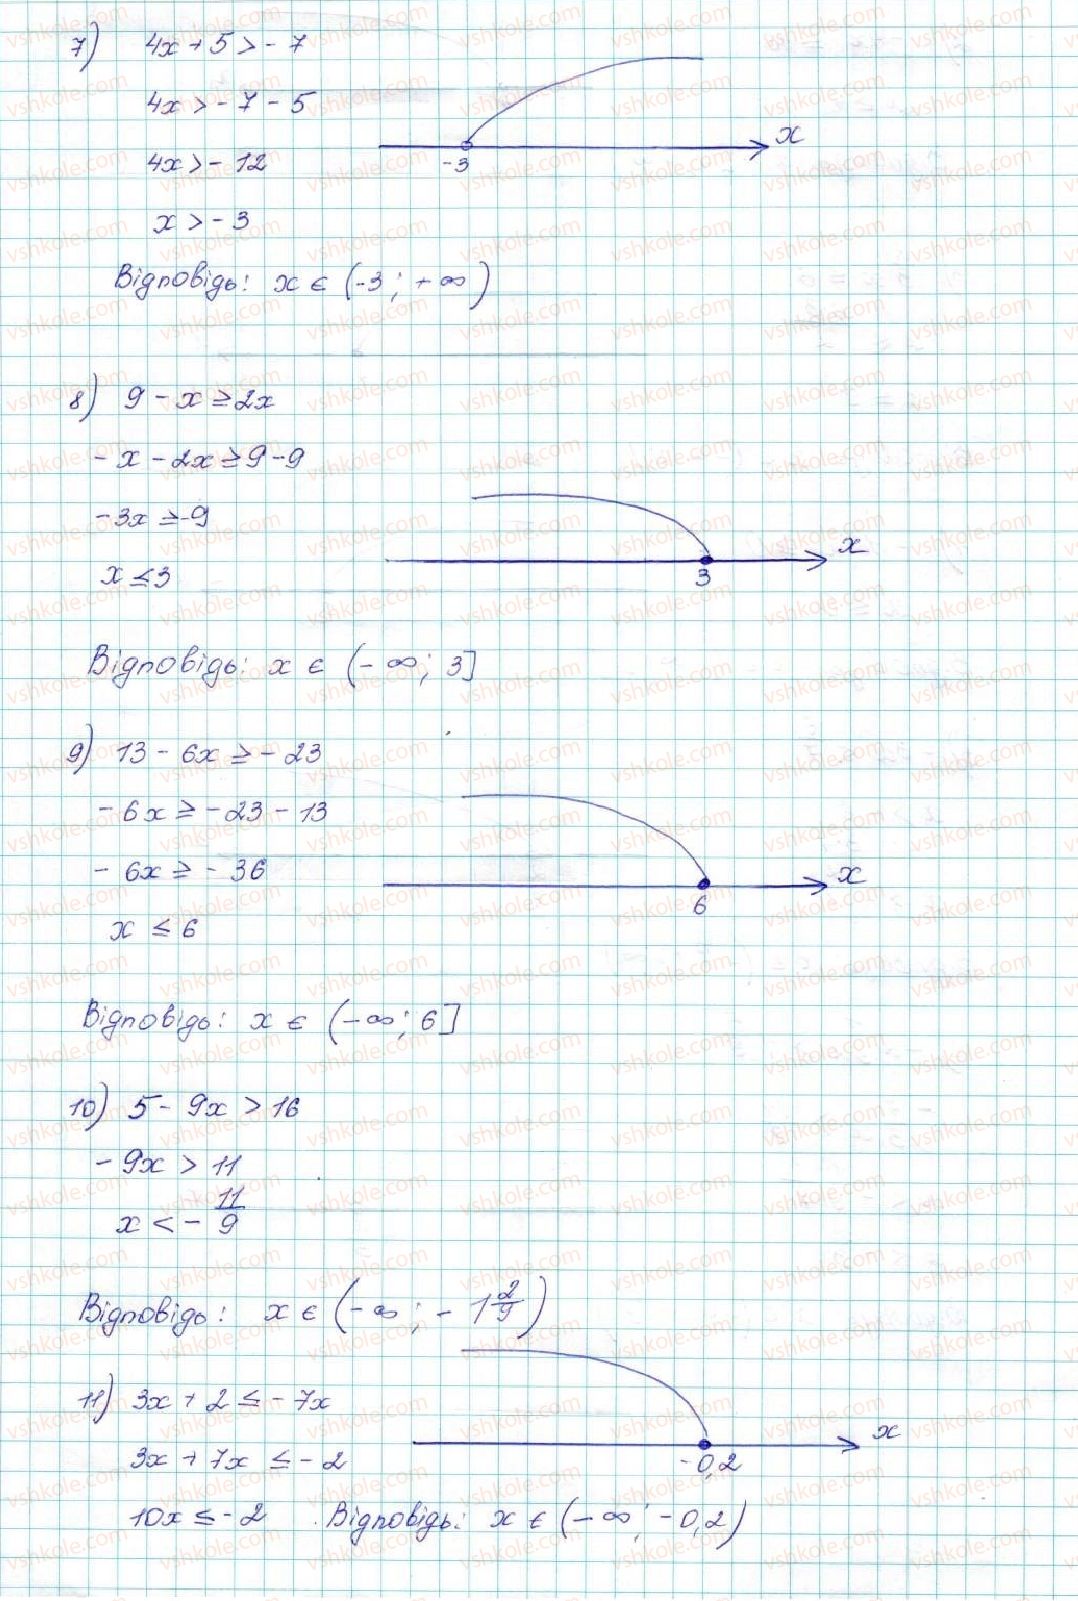 7) 4x + 5 > - 7
4x > - 7 - 5
4x > - 12
x > - 3
-3
x
Відповідь: x ∈ (-3; + ∞)
8) 9 - x ≥ 2x
- x - 2x ≥ 9 - 9
-3x ≥ -9
x ≤ 3
3
x
Відповідь: x ∈ (- ∞; 3]
9) 13 - 6x ≥ - 23
- 6x ≥ - 23 - 13
- 6x ≥ - 36
x ≤ 6
6
x
Відповідь: x ∈ (-∞; 6]
10) 5 - 9x > 16
- 9x > 11
x < - 11/9
Відповідь: x ∈ (-∞; - 1 2/9)
11) 3x + 2 ≤ - 7x
3x + 7x ≤ - 2
-0,2
x
10x ≤ - 2 Відповідь: x ∈ (- ∞; -0,2)
vshkole.com